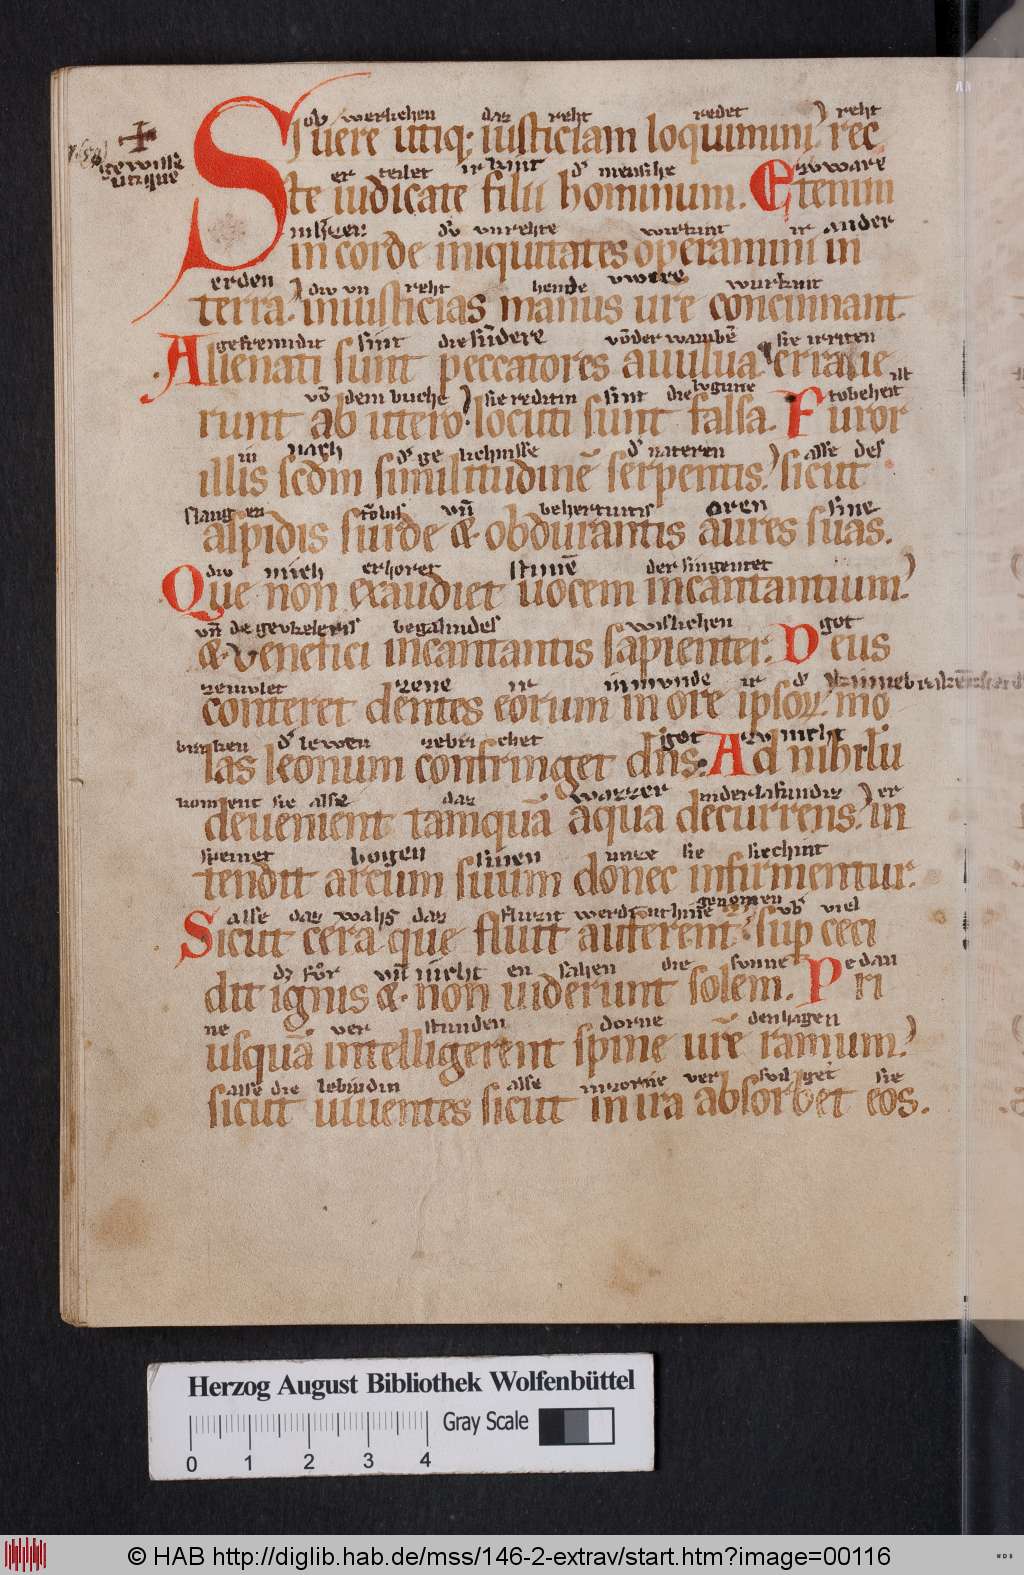 ob werlichen daz reht redet reht
Si uere utiq; iusticiam loquimini. rec
gewisse
utique
er teilet ir kint d' mensche zware
te iudicate filii hominum. Etenim
ir ander
in corde iniquitates operamini in
erden diu un reht hende wurkint
terra. iniusticias manus ure concinnant.
gefremidit sint die sundere sie irriten
Alienati sunt peccatores a uulua erraue
dem buche sie reditin sint die lugine ist tobeheit
runt ab utero. locuti sunt falsa. Furor
in nach d' ge lichnisse d' nateren alse des
illis scdm similitudinē serpentis. sicut
slangen vn̄ oren sine
aspidis surde & obdurantis aures suas.
diu nich erhoret stimē der singentet
Que non exaudiet uocem incantantium.
vn̄ wislichen got
& venefici incantantis sapienter. Deus
zene ir in munde ir d'
conteret dentes eorum in ore ipsoꝝ mo
d' lewen zebrichet got zv nicht
las leonum confringet dns. Ad nihilū
koment sie alse daz wazzer er
deuenient tamquā aqua decurrens. in
bogen sinen unze sie siechint
tendit arcum suum donec infirmentur.
alse daz wahs daz fluzit viel
Sicut cera que fluit auferent. sup ceci
vn̄ nicht en sahen die sunne e dan
dit ignis & non uiderunt solem. Pri
ne ver stunden dorne
usquā intelligerent spine urē ramum.
alse die lebindin alse sie
sicut uiuentes sicut in ira absorbet eos.
Herzog August Bibliothek Wolfenbüttel
Gray Scale
0 1 2 3 4
© HAB http://diglib.hab.de/mss/146-2-extrav/start.htm?image=00116